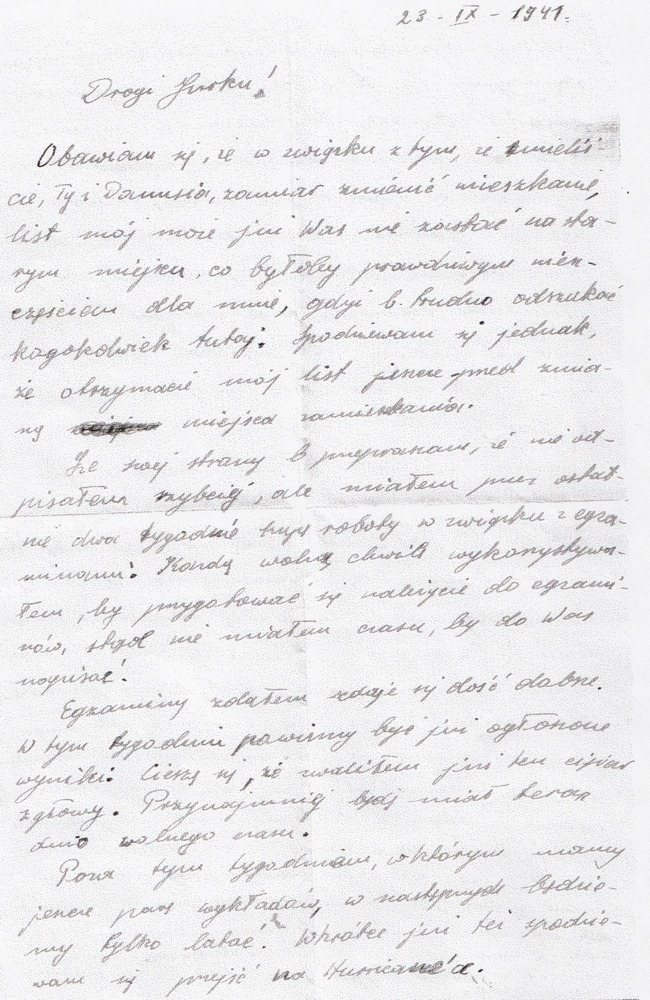 23 - IX - 1941.
Drogi Jurku!
Obawiam się, że w związku z tym, że mieliś-
cie, Ty i Danusia, zamiar zmienić mieszkanie,
list mój może już Was nie zastać na sta-
rym miejscu, co byłoby prawdziwym niesz-
częściem dla mnie, gdyż b. trudno odszukać
kogokolwiek tutaj. Spodziewam się jednak,
że otrzymacie mój list jeszcze przed zmia-
ną miejsca zamieszkania.
Ze swej strony b. przepraszam, że nie od-
pisałem szybciej, ale miałem przez ostat-
nie dwa tygodnie huk roboty w związku z egza-
minami. Każdą wolną chwilę wykorzystywa-
łem, by przygotować się należycie do egzami-
nów, stąd nie miałem czasu, by do Was
napisać!
Egzaminy zdałem zdaje się dość dobrze.
W tym tygodniu powinny być już ogłoszone
wyniki. Cieszę się, że zwaliłem już ten ciężar
z głowy. Przynajmniej będę miał teraz
dużo wolnego czasu.
Poza tym tygodniem, w którym mamy
jeszcze parę wykładów, w następnych będzie-
my tylko latać! Wkrótce już też spodzie-
wam się przejść na Hurricane'a.